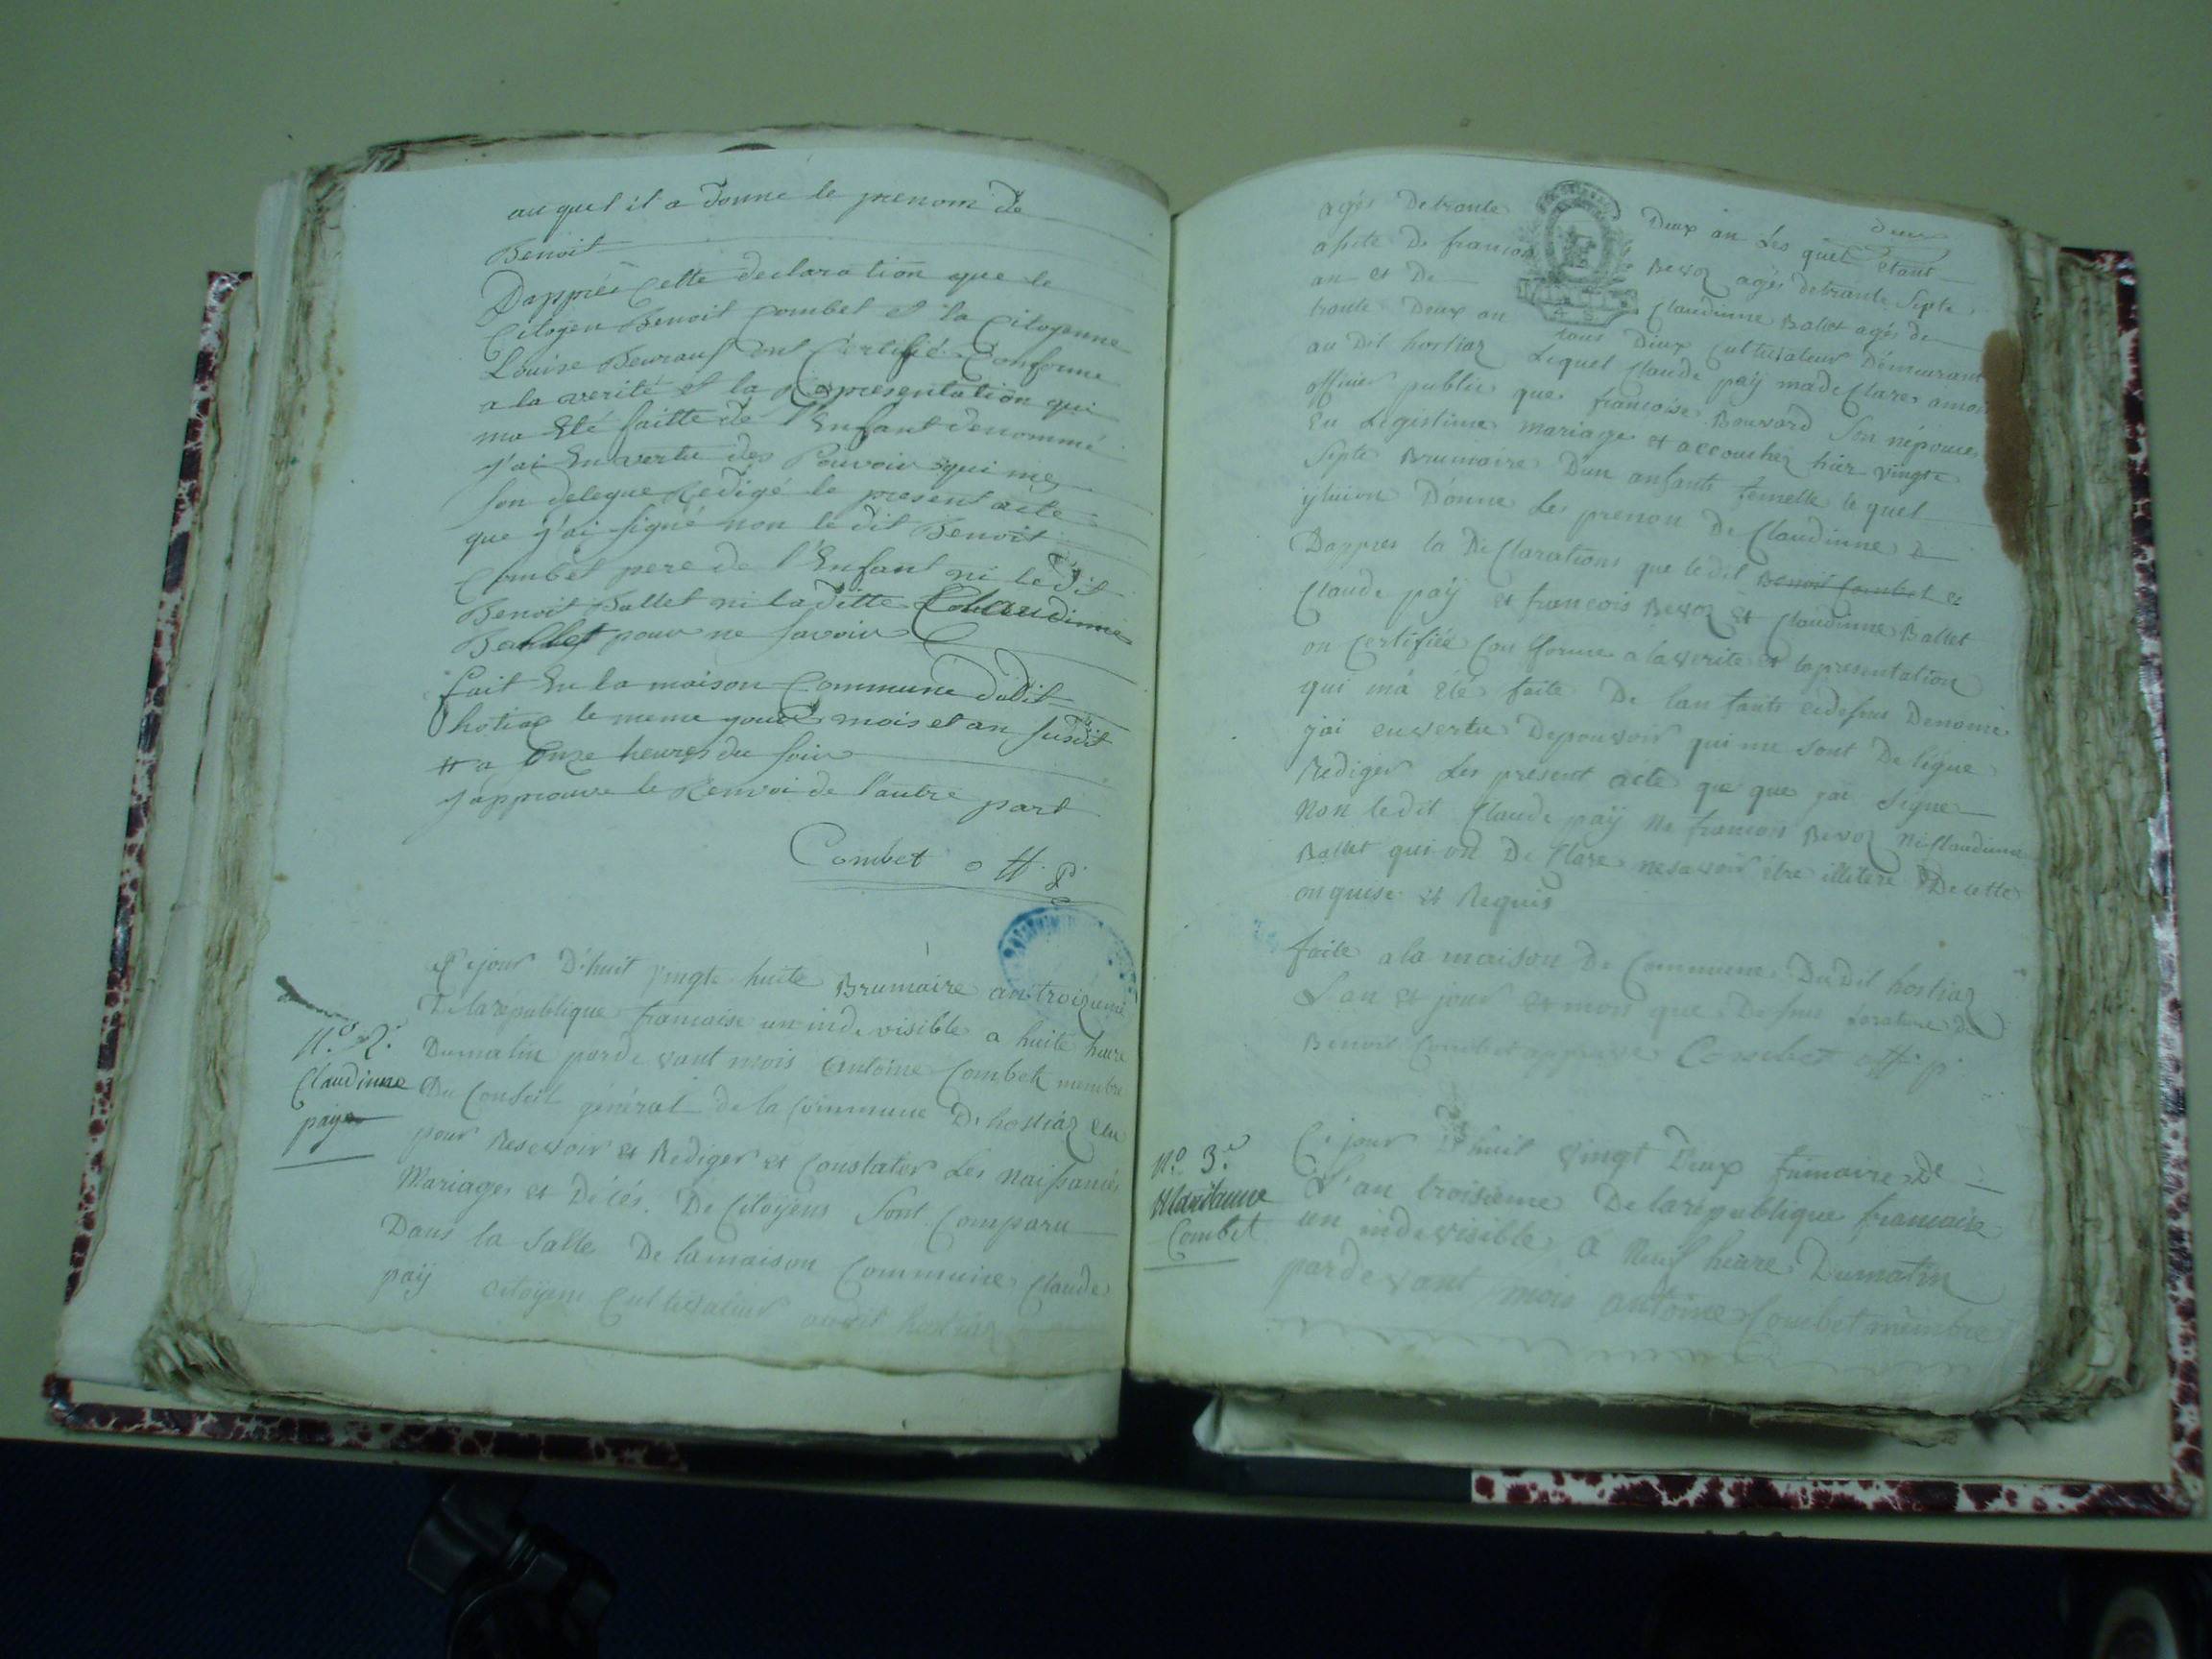 au quel il a donne le prenom de
Benoit
Dapprés Cette declaration que le
Citoyen Benoit Combet et la Citoyenne
Louise ont Certifié Conforme
a la verité et la Representation qui
ma Eté faitte de l'Enfant denommé
J'ai En vertu des Pouvoir qui me
son delegue Redigé le present acte
que j'ai signé non le dit Benoit
Combet pere de l'Enfant ni le dit
Benoit Ballet ni la ditte Claudinne
Ballet pour ne savoir
fait En la maison Commune dudit
hotiaz le meme jour mois et an susdit
# a onze heures du soir
J'approuve le Renvoi de l'autre part
Combet off. p.
Ce jour D'huit vingt huite Brumaire an troizeme
De la republique francaise un indevisible a huite heure
Du matin parde vant mois antoine Combet membre
Du Conseil general de la Commune De hostiaz elu
pour Resevoir et Rediger et Constater Les naissances
Mariages et Décés De Citoÿens Sont Comparu
Dans la Salle De la maison Commune Claude
paÿ citoÿen Cultivateur audit hostiaz
N.º 2.
Claudinne
paÿ
deux
agés De trante Deux an Les quel Etant
asisté De francois Bevoz agés De trante Septe
an et De Claudinne Ballet agés de
trante Deux an tous Deux Cultivateur Demeurant
au Dit hostiaz Lequel Claude paÿ ma de Clare amoi
officier public que francoise Bouvard Son népouce
En Legistime mariage et accouchez hier vingt
Septe Brumaire Dun anfants femelle le quel
Donne Les prenon De Claudinne
Dappres la De Clarations que le dit Benoit Combet et
Claude paÿ et francois Bevoz et Claudinne Ballet
on Certifiée Con forme a la verite et la presentation
qui ma été faite De lan fants cidesus Denomé
j'ai en vertu De pouvoir qui me sont De legue
Rediger Les present acte que que jai Signe
Non le dit Claude paÿ ne francois Bevoz ni Claudinne
Ballet qui on De Clare ne savoir étre illetere De cette
onquise et Requis
faite a la maison De Commune Du Dit hostiaz
L'an et jour et mois que De sus
Benoit Combet approuve Combet off. p.
N.º 3.e
Combet
Ce jour D'huit vingt Deux frimaire De
L'an troisieme De la republique francaise
un indevisible a neuf heure Du matin
parde vant mois antoine Combet membre